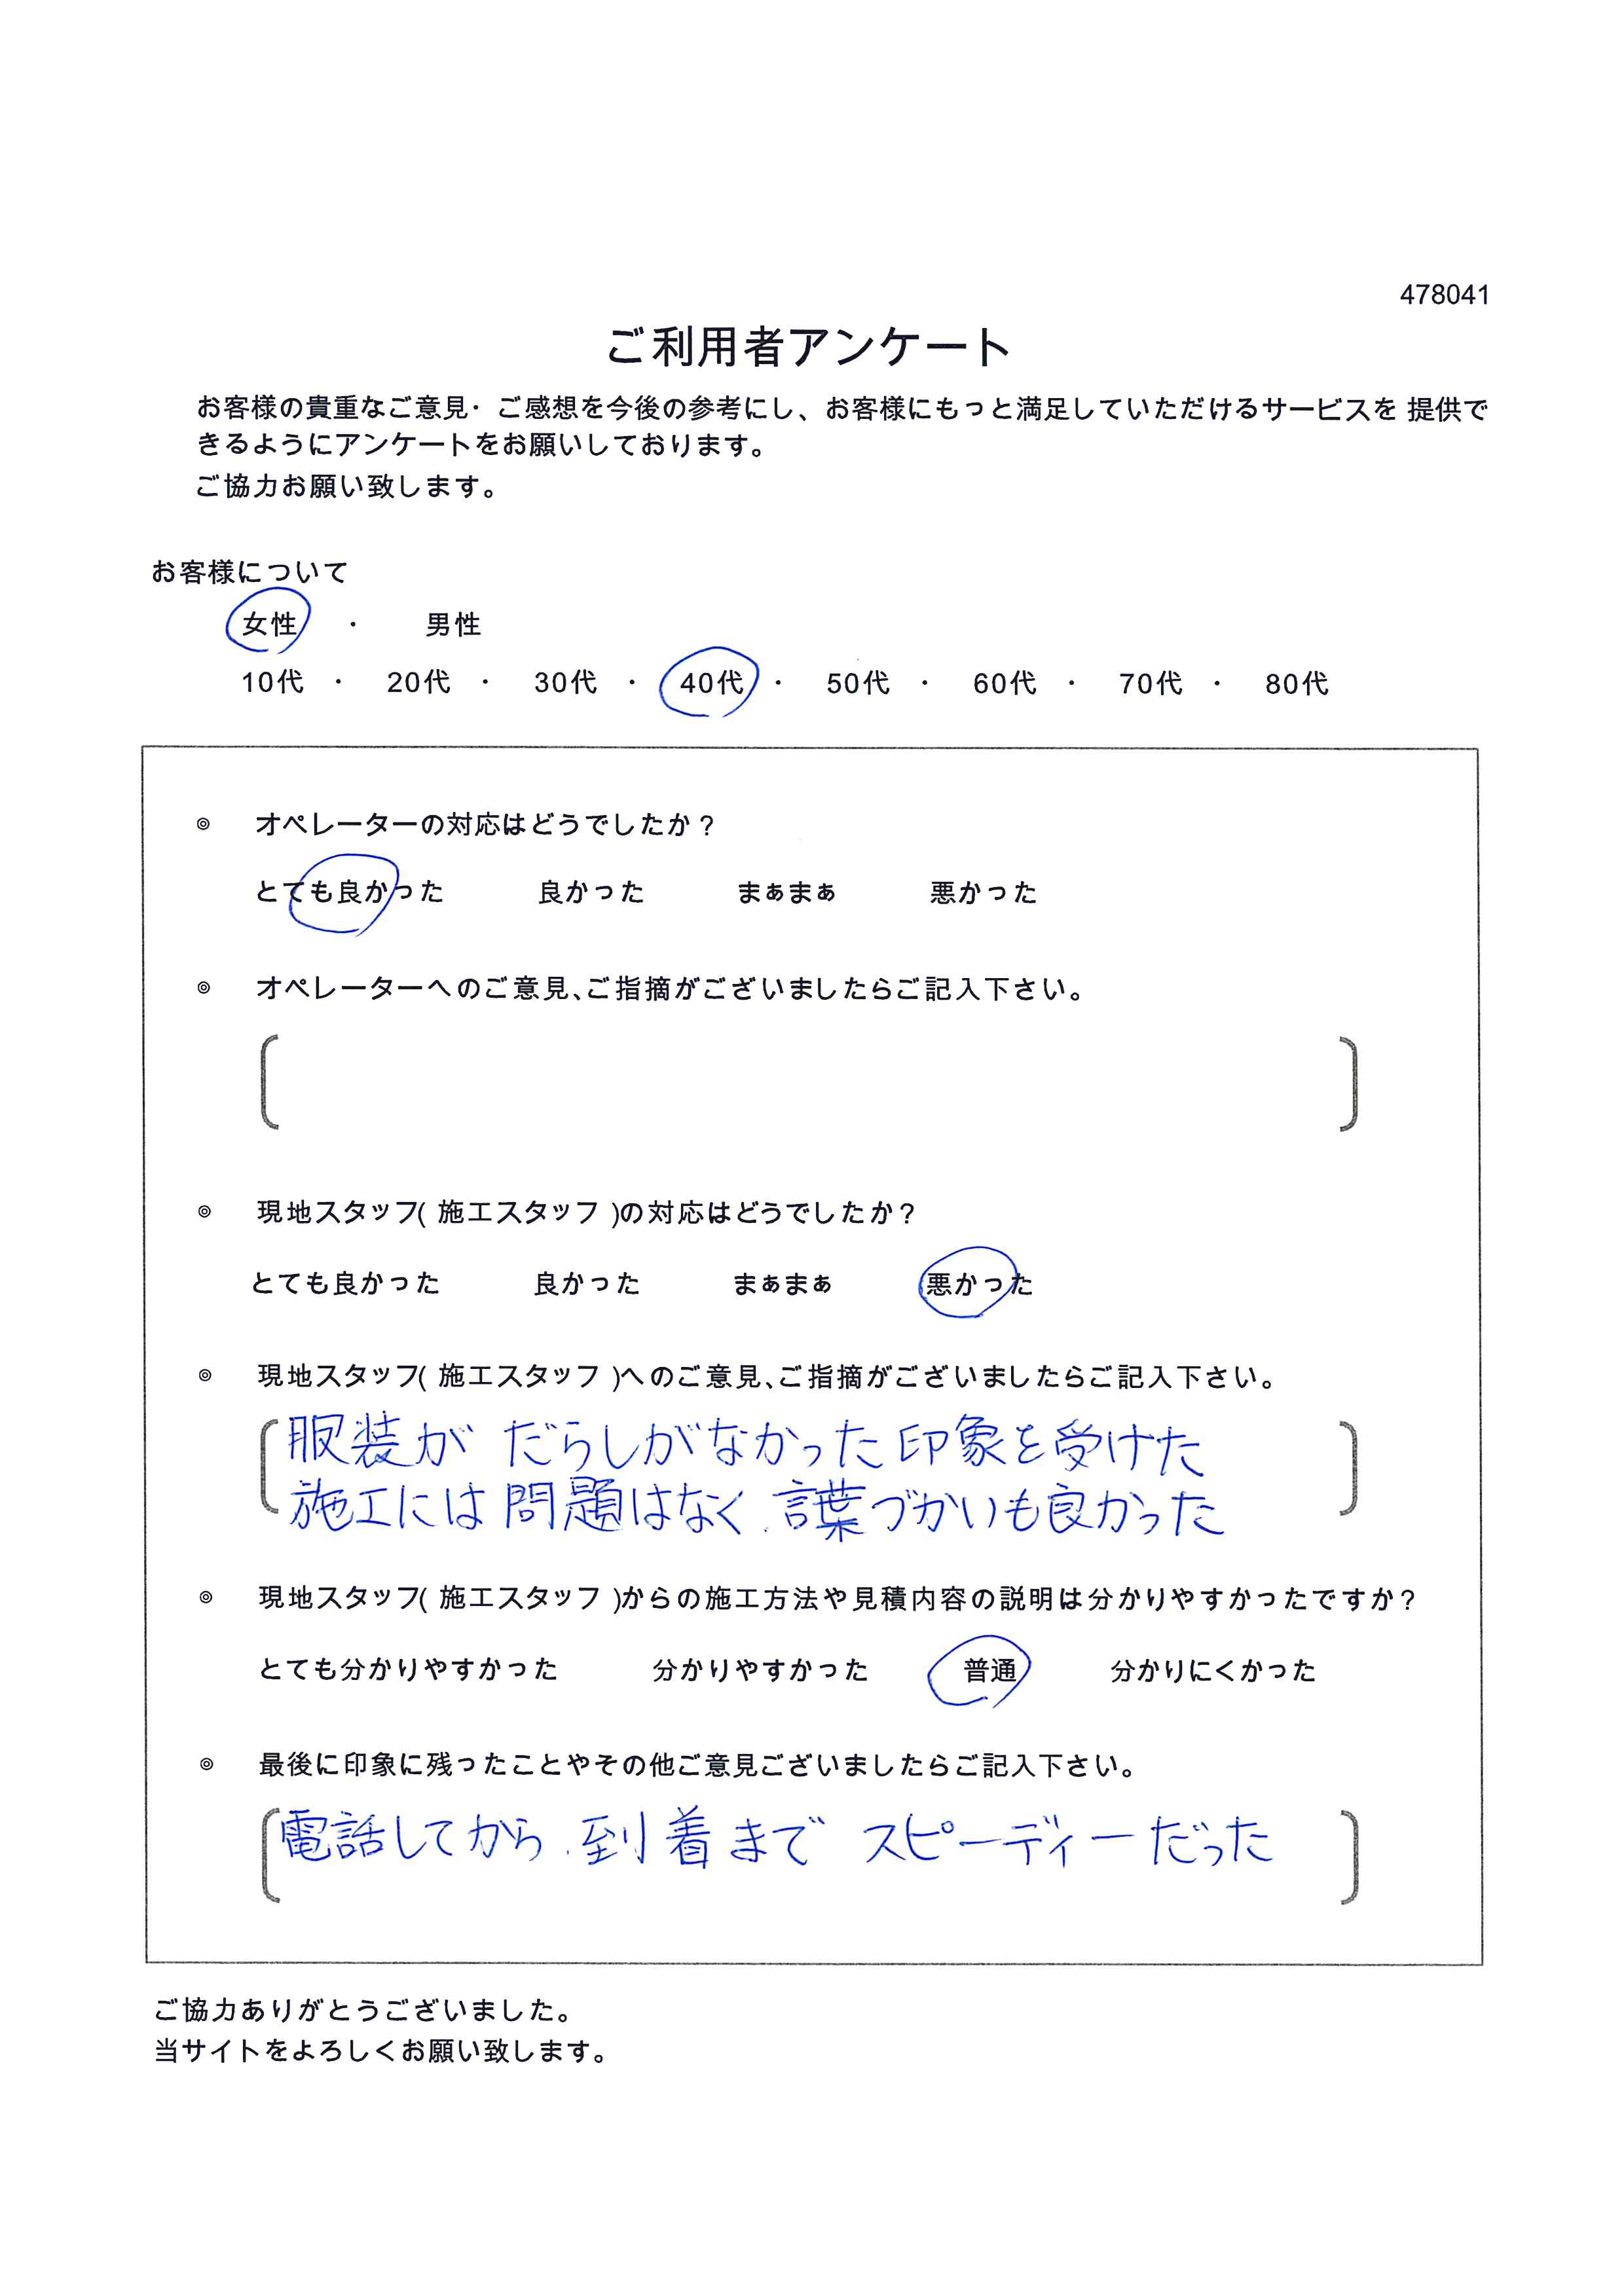 478041
ご利用者アンケート
お客様の貴重なご意見・ご感想を今後の参考にし、お客様にもっと満足していただけるサービスを 提供で
きるようにアンケートをお願いしております。
ご協力お願い致します。
お客様について
女性 ・ 男性
10代 ・ 20代 ・ 30代 ・ 40代 ・ 50代 ・ 60代 ・ 70代 ・ 80代
◎ オペレーターの対応はどうでしたか？
とても良かった 良かった まぁまぁ 悪かった
◎ オペレーターへのご意見、ご指摘がございましたらご記入下さい。
◎ 現地スタッフ( 施工スタッフ )の対応はどうでしたか？
とても良かった 良かった まぁまぁ 悪かった
◎ 現地スタッフ( 施工スタッフ )へのご意見、ご指摘がございましたらご記入下さい。
服装が だらしがなかった印象を受けた
施工には問題はなく、言葉づかいも良かった
◎ 現地スタッフ( 施工スタッフ )からの施工方法や見積内容の説明は分かりやすかったですか？
とても分かりやすかった 分かりやすかった 普通 分かりにくかった
◎ 最後に印象に残ったことやその他ご意見ございましたらご記入下さい。
電話してから、到着まで スピーディーだった
ご協力ありがとうございました。
当サイトをよろしくお願い致します。